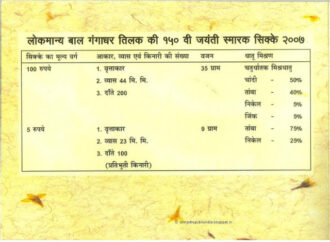 लोकमान्य बाल गंगाधर तिलक की १५० वी जयंती स्मारक सिक्के २००७
सिक्के का मूल्य वर्ग आकार, व्यास एवं किनारी की संख्या वजन धातु मिश्रण
100 रुपये 1. वृत्ताकार 35 ग्राम चतुर्घातक मिश्रधातु
2. व्यास 44 मि. मि. चांदी - 50%
3. दाँते 200 तांबा - 40%
निकेल - 5%
जिंक - 5%
5 रुपये 1. वृत्ताकार 9 ग्राम तांबा - 75%
2. व्यास 23 मि. मि. निकेल - 25%
3. दाँते 100
(प्रतिभुती किनारी)